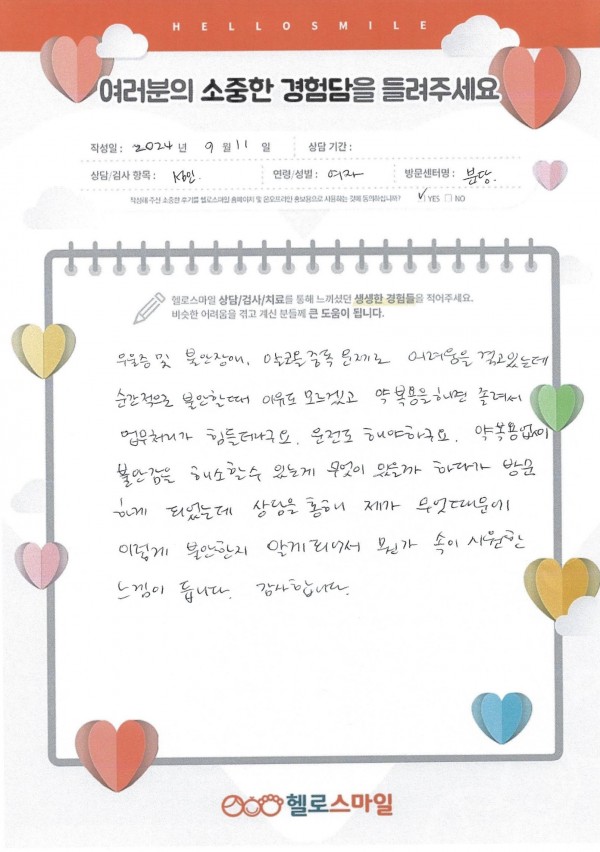 HELLOSMILE
여러분의 소중한 경험담을 들려주세요
작성일 : 2024 년 9 월 11 일 상담 기간 :
상담/검사 항목 : 성인. 연령/성별 : 여자 방문센터명 : 분당.
작성해 주신 소중한 후기를 헬로스마일 홈페이지 및 온오프라인 홍보용으로 사용하는 것에 동의하십니까? ✓ YES □ NO
헬로스마일 상담/검사/치료를 통해 느끼셨던 생생한 경험들을 적어주세요.
비슷한 어려움을 겪고 계신 분들께 큰 도움이 됩니다.
우울증 및 불안장애, 알코올중독 문제로 어려움을 겪고있는데
순간적으로 불안할때 이유도 모르겠고 약 복용을 하면 졸려서
업무처리가 힘들더라구요. 운전도 해야하구요. 약복용없이
불안감을 해소할수 있는게 무엇이 있을까 하다가 방문
하게 되었는데 상담을 통해 제가 무엇때문에
이렇게 불안한지 알게되어서 뭔가 속이 시원한
느낌이 듭니다. 감사합니다.
헬로스마일